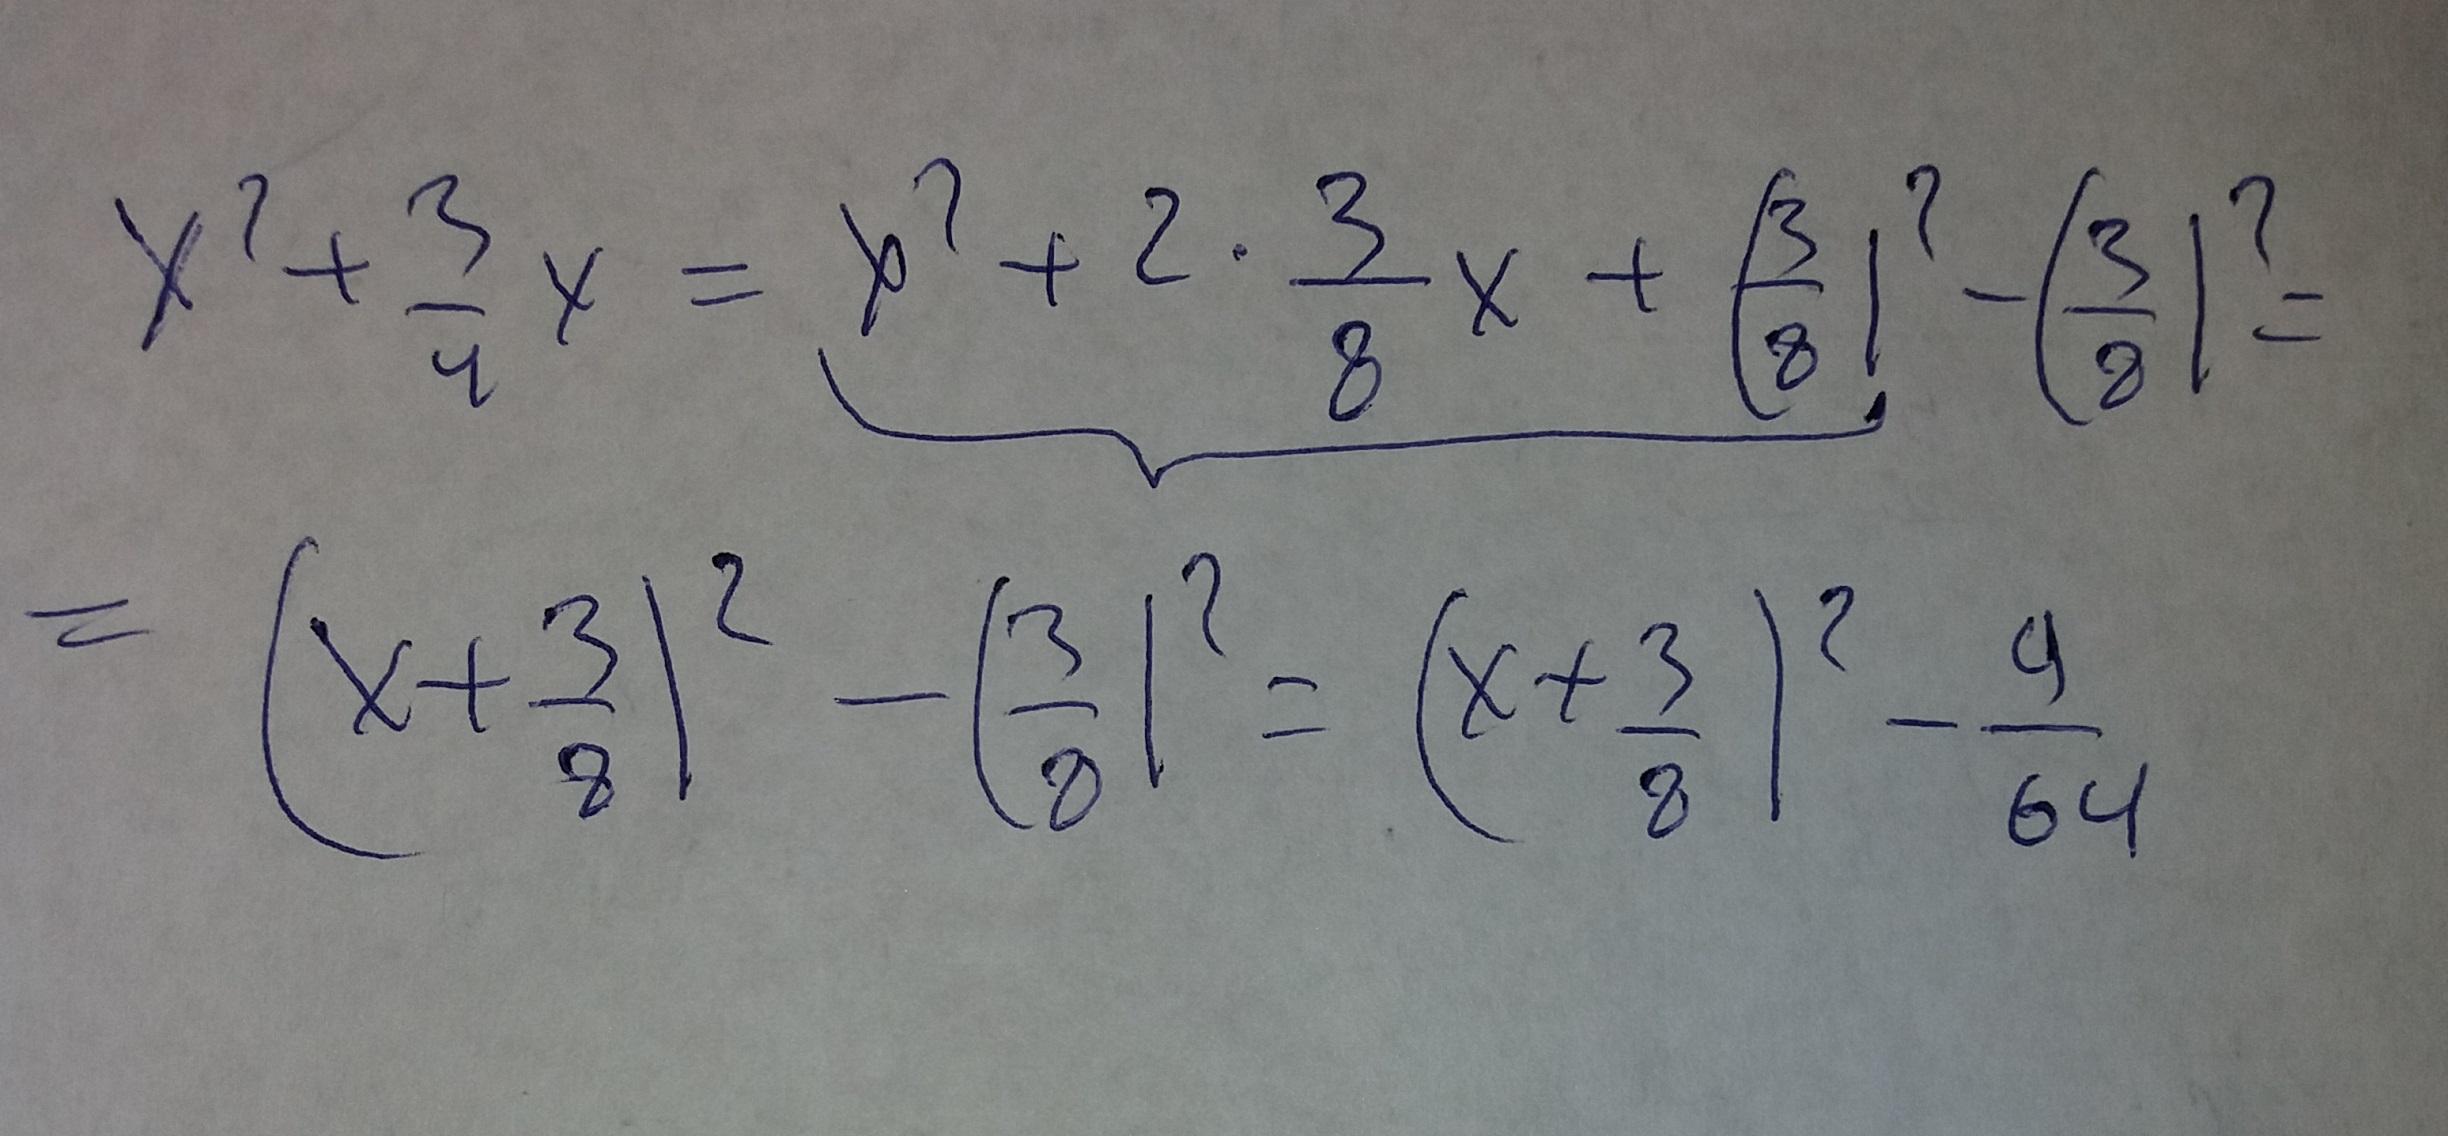 x² + 3/4 x = x² + 2 · 3/8 x + (3/8)² - (3/8)² =
= (x + 3/8)² - (3/8)² = (x + 3/8)² - 9/64